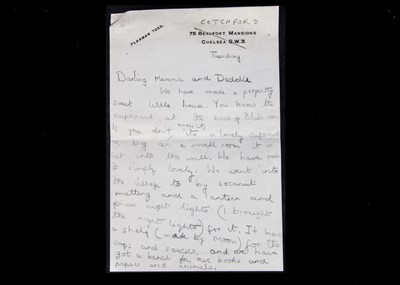 COTCHFORD
FLAXMAN 7068.
76 BEAUFORT MANSIONS
CHELSEA S.W.3.
Tuesday
Darling Mummie and Daddie
We have made a perfectly
sweet little house. You know the
cupboard at the back of Blue room
know it,
If you don't its a lovely cupboard
big as a small room it is
cut into the wall. We have made
it simply lovely. We went into
the village to by
matting and a lantern and
price night lights (I brought
the night lights) for it. It has
a shelf (made by Moon) for the
cups and saucers, and we have
got a bench for our books and
papers and animals.